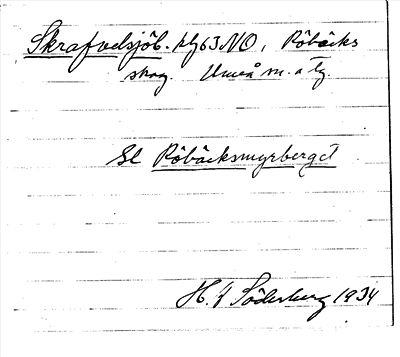 Skrafvelsjöb. kb 63 NO, Röbäcks
skog. Umeå sn. o tg.
Se Röbäcksmyrberget
H. G Söderberg 1934